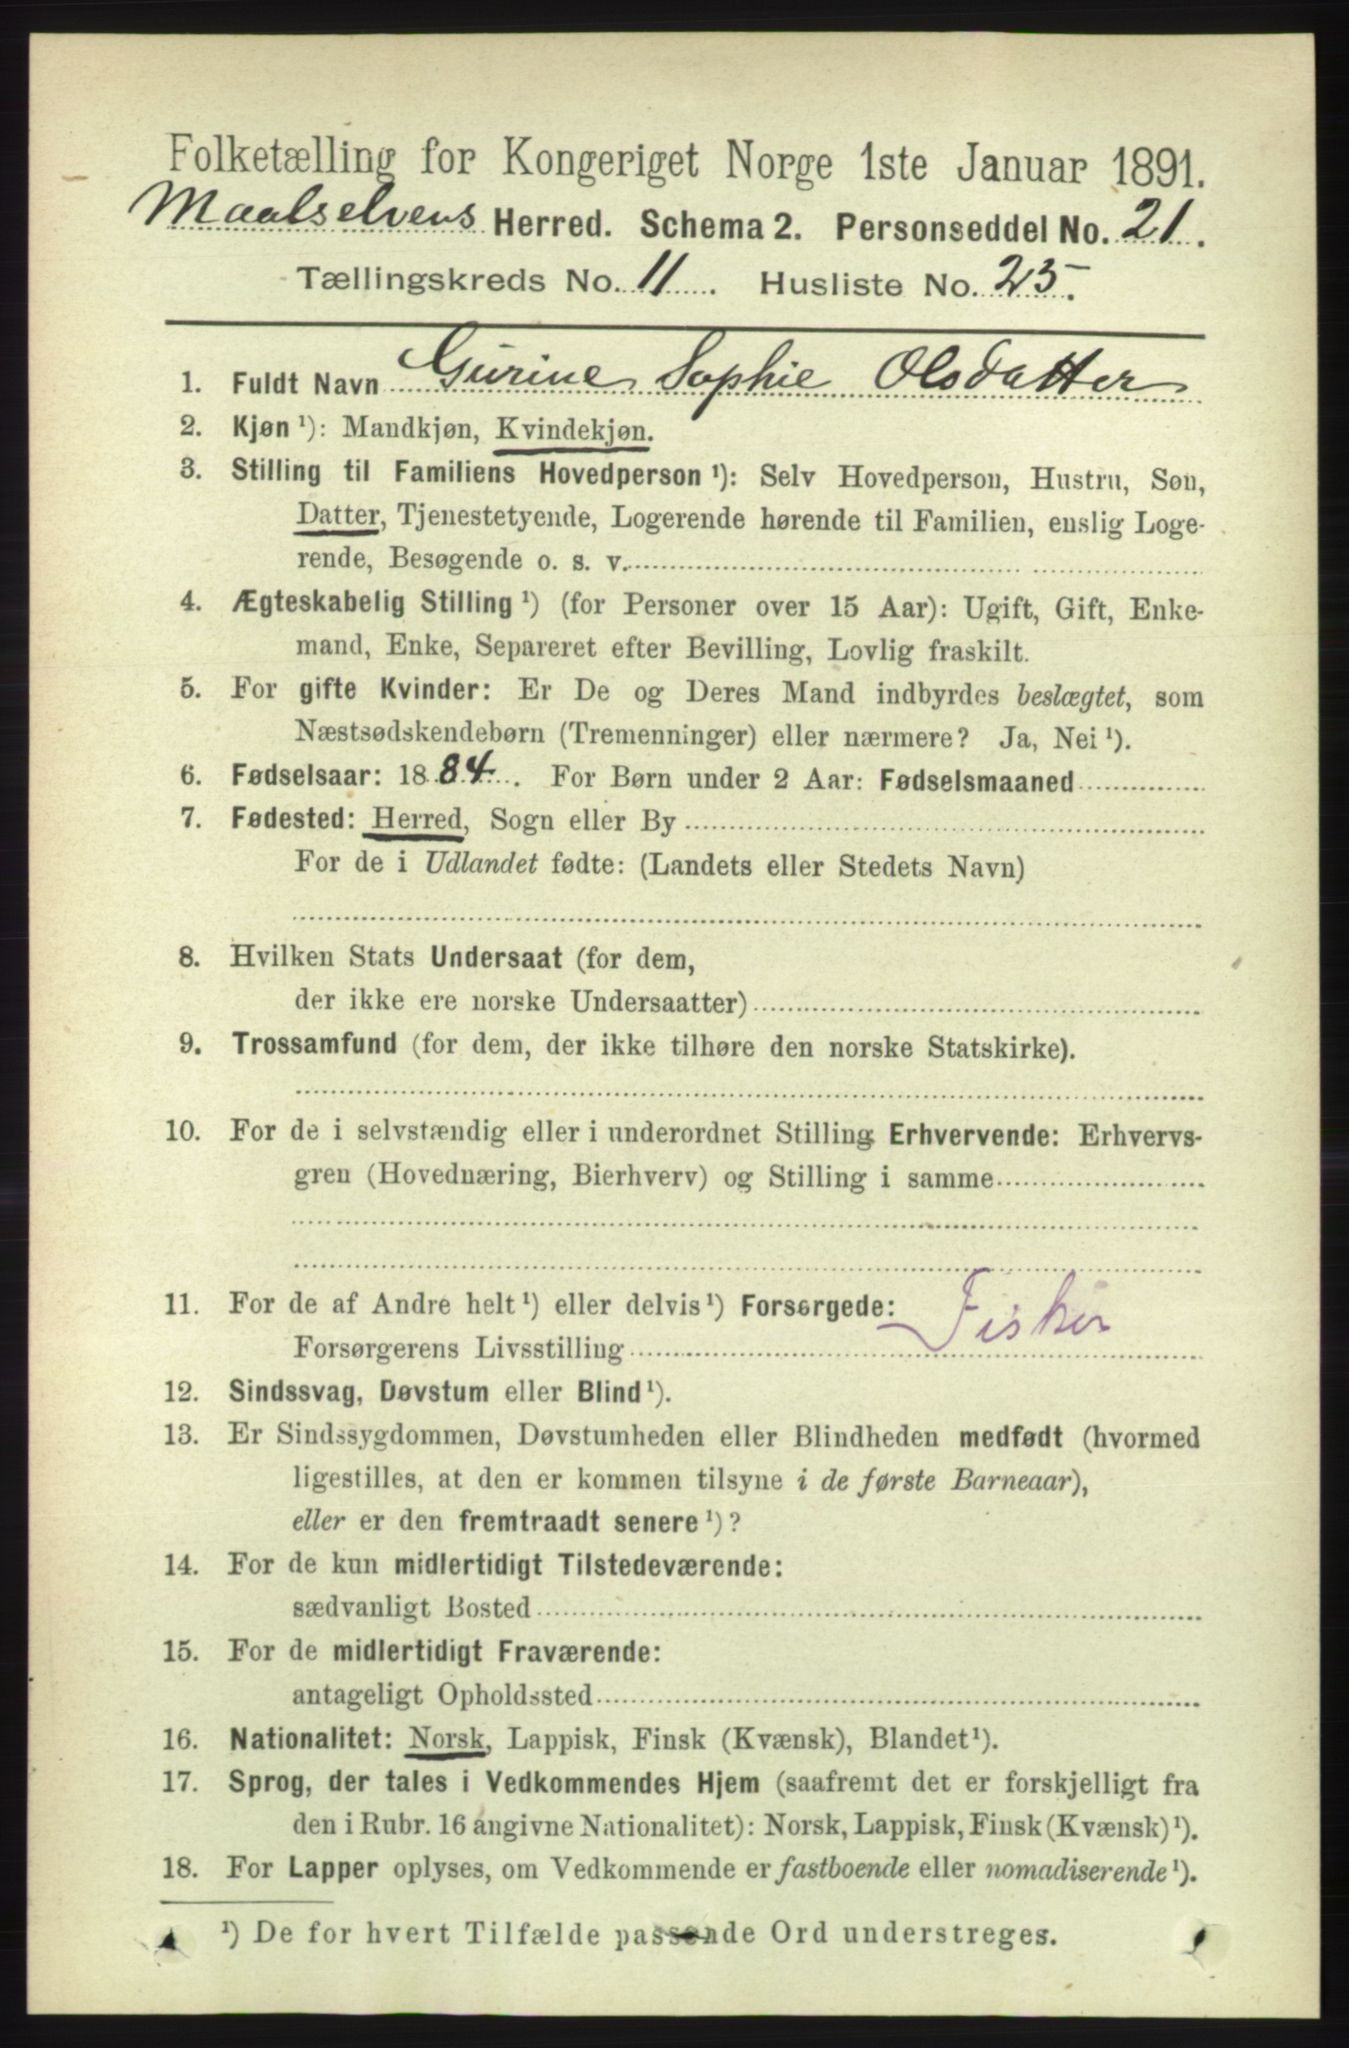 Folketælling for Kongeriget Norge 1ste Januar 1891.
Maalselvens Herred. Schema 2. Personseddel No. 21.
Tællingskreds No. 11. Husliste No. 25.
1. Fuldt Navn Gurine Sophie Olsdatter
2. Kjøn ¹): Mandkjøn, Kvindekjøn.
3. Stilling til Familiens Hovedperson ¹): Selv Hovedperson, Hustru, Søn,
Datter, Tjenestetyende, Logerende hørende til Familien, enslig Loge-
rende, Besøgende o. s. v.
4. Ægteskabelig Stilling ¹) (for Personer over 15 Aar): Ugift, Gift, Enke-
mand, Enke, Separeret efter Bevilling, Lovlig fraskilt.
5. For gifte Kvinder: Er De og Deres Mand indbyrdes beslægtet, som
Næstsødskendebørn (Tremenninger) eller nærmere? Ja, Nei ¹).
6. Fødselsaar: 1884. For Børn under 2 Aar: Fødselsmaaned
7. Fødested: Herred, Sogn eller By
For de i Udlandet fødte: (Landets eller Stedets Navn)
8. Hvilken Stats Undersaat (for dem,
der ikke ere norske Undersaatter)
9. Trossamfund (for dem, der ikke tilhøre den norske Statskirke).
10. For de i selvstændig eller i underordnet Stilling Erhvervende: Erhvervs-
gren (Hovednæring, Bierhverv) og Stilling i samme
11. For de af Andre helt ¹) eller delvis ¹) Forsørgede:
Forsørgerens Livsstilling Fisker
12. Sindssvag, Døvstum eller Blind ¹).
13. Er Sindssygdommen, Døvstumheden eller Blindheden medfødt (hvormed
ligestilles, at den er kommen tilsyne i de første Barneaar),
eller er den fremtraadt senere ¹)?
14. For de kun midlertidigt Tilstedeværende:
sædvanligt Bosted
15. For de midlertidigt Fraværende:
antageligt Opholdssted
16. Nationalitet: Norsk, Lappisk, Finsk (Kvænsk), Blandet ¹).
17. Sprog, der tales i Vedkommendes Hjem (saafremt det er forskjelligt fra
den i Rubr. 16 angivne Nationalitet): Norsk, Lappisk, Finsk (Kvænsk) ¹).
18. For Lapper oplyses, om Vedkommende er fastboende eller nomadiserende ¹).
¹) De for hvert Tilfælde passende Ord understreges.